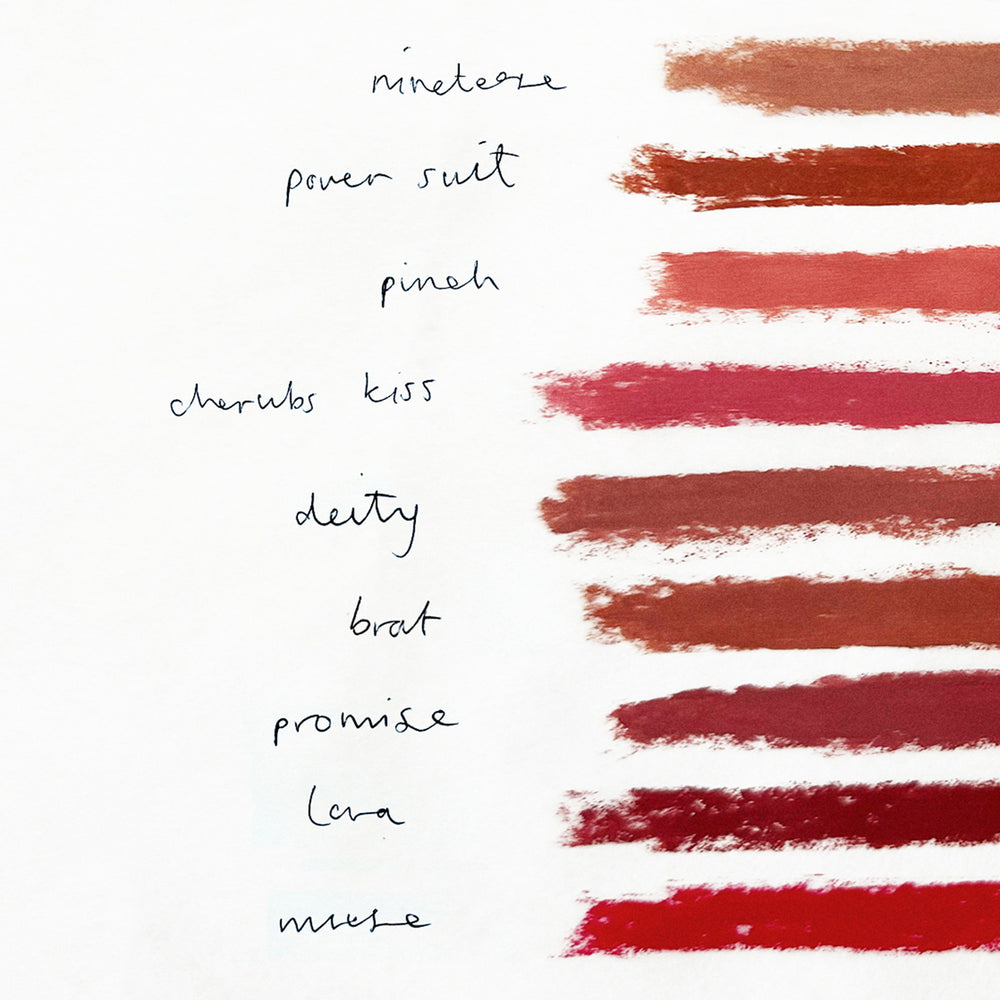 power suit
pinch
cherubs kiss
deity
brat
promise
Lana
muse